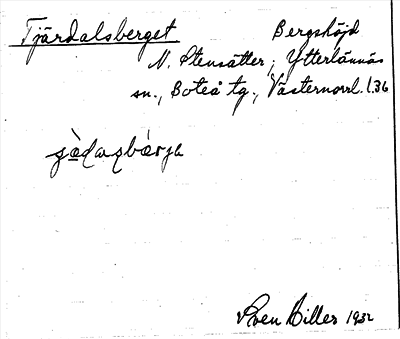 Tjärdalsberget Bergshöjd
N. Stensätter, Ytterlännäs
sn., Boteå tg., Västernorrl. l. 36
Sven Hiller 1932